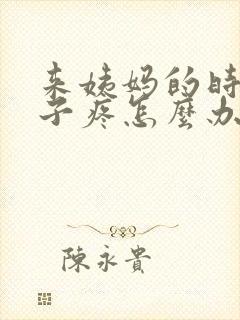 来姨妈的时
子疼怎麼办
陳永貴